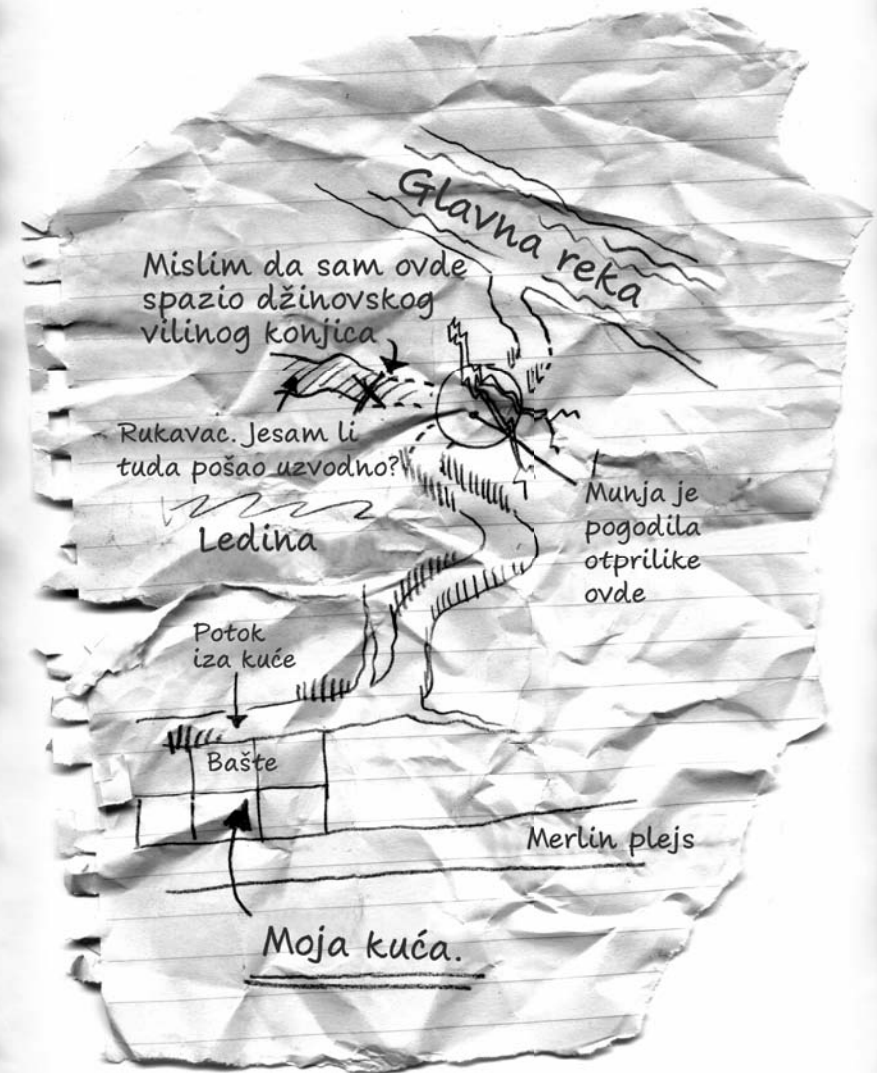 Glavna reka
Mislim da sam ovde
spazio džinovskog
vilinog konjica
Rukavac. Jesam li
tuda pošao uzvodno?
Munja je
pogodila
otprilike
ovde
Ledina
Potok
iza kuće
Bašte
Merlin plejs
Moja kuća.